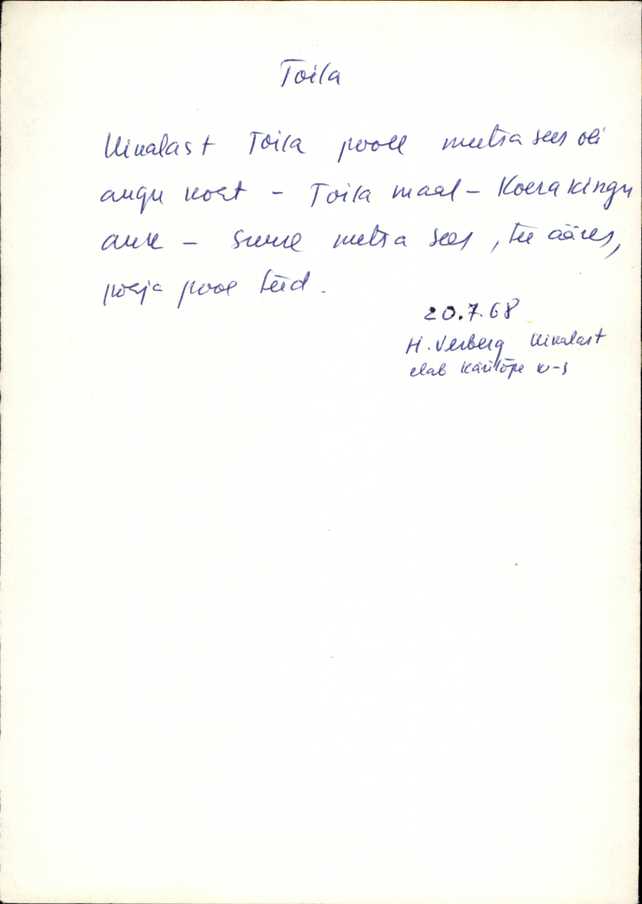 Toila
Uikalast Toila poole metsa sees oli
augu koht - Toila maal - Koerakingu
auk - Suure metsa sees, tee ääres,
põhja pool teed.
20.7.68
H. Verberg Uikalast
elab Käsikõpe k-s